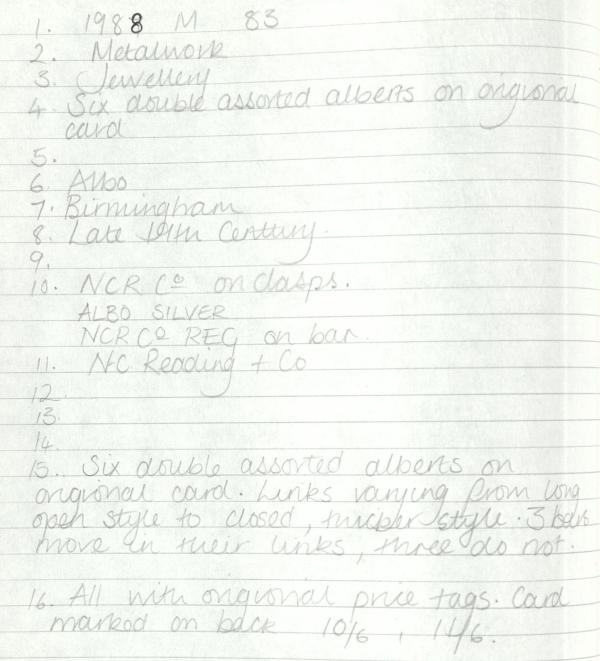 1. 1988 M 83
2. Metalwork
3. Jewellery
4 Six double assorted alberts on origional
card
5.
6. Albo
7. Birmingham
8. Late 19th Century.
9.
10. NCR Co on clasps.
ALBO SILVER
NCR Co REG on bar.
11. N.C Reading + Co
12.
13.
14.
15. Six double assorted alberts on
origional card. Links varying from long
open style to closed, thicker style. 3
move in their links, three do not.
16. All with origional price tags. Card
marked on back 10/6, 11/6.